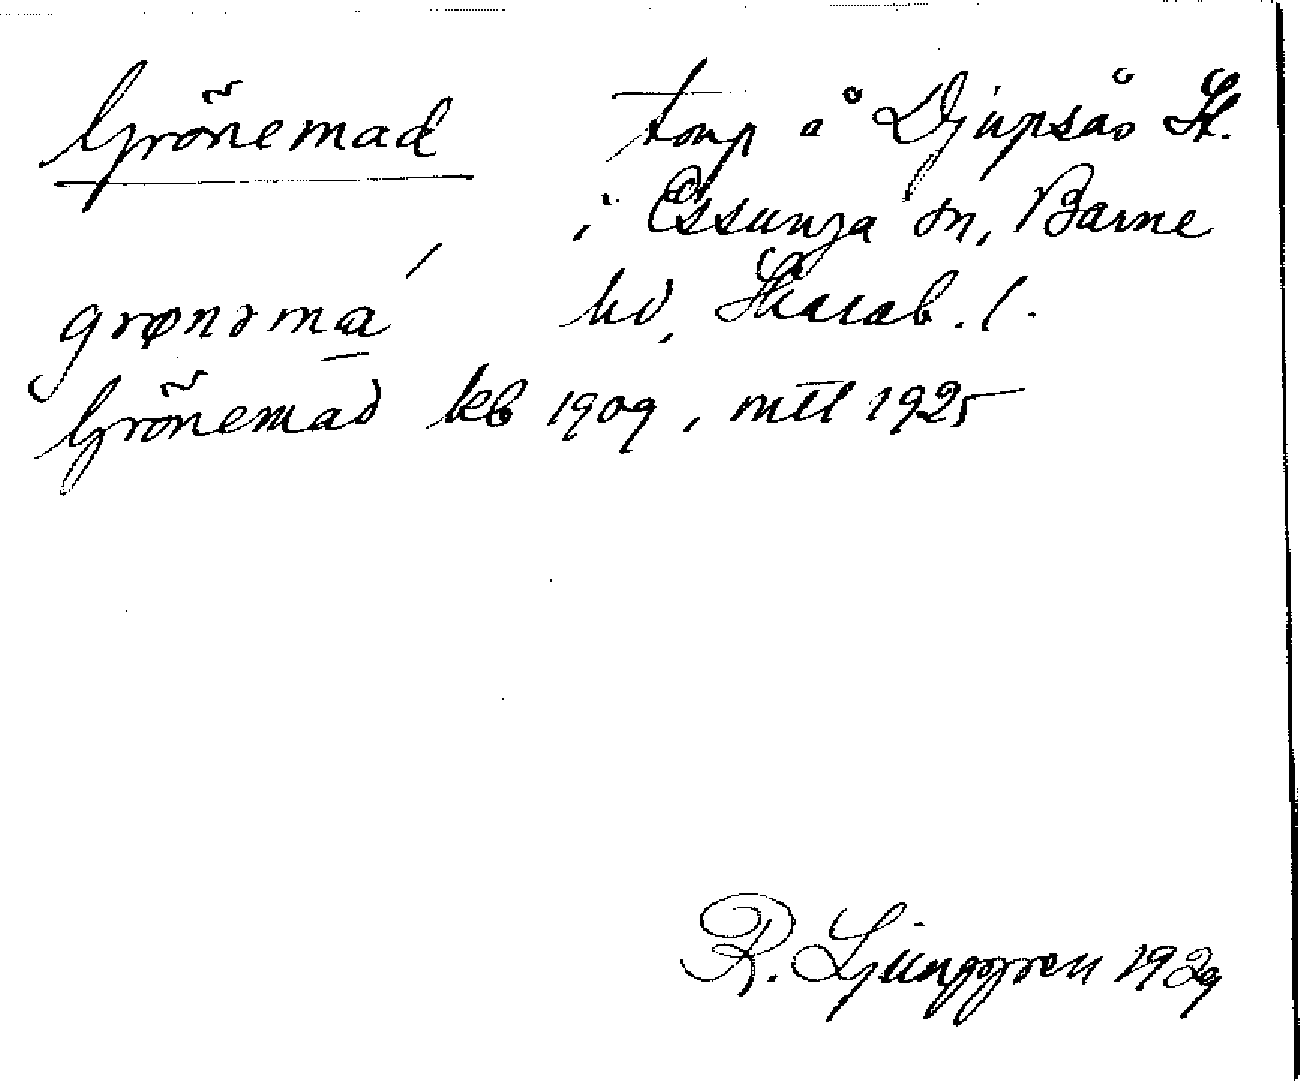 Grönemad torp å Djupsås St.
i Essunga sn, Barne
grønəmá hd, Skarab. l.
Grönemad kb 1909, mtl 1925
R. Ljunggren 1929